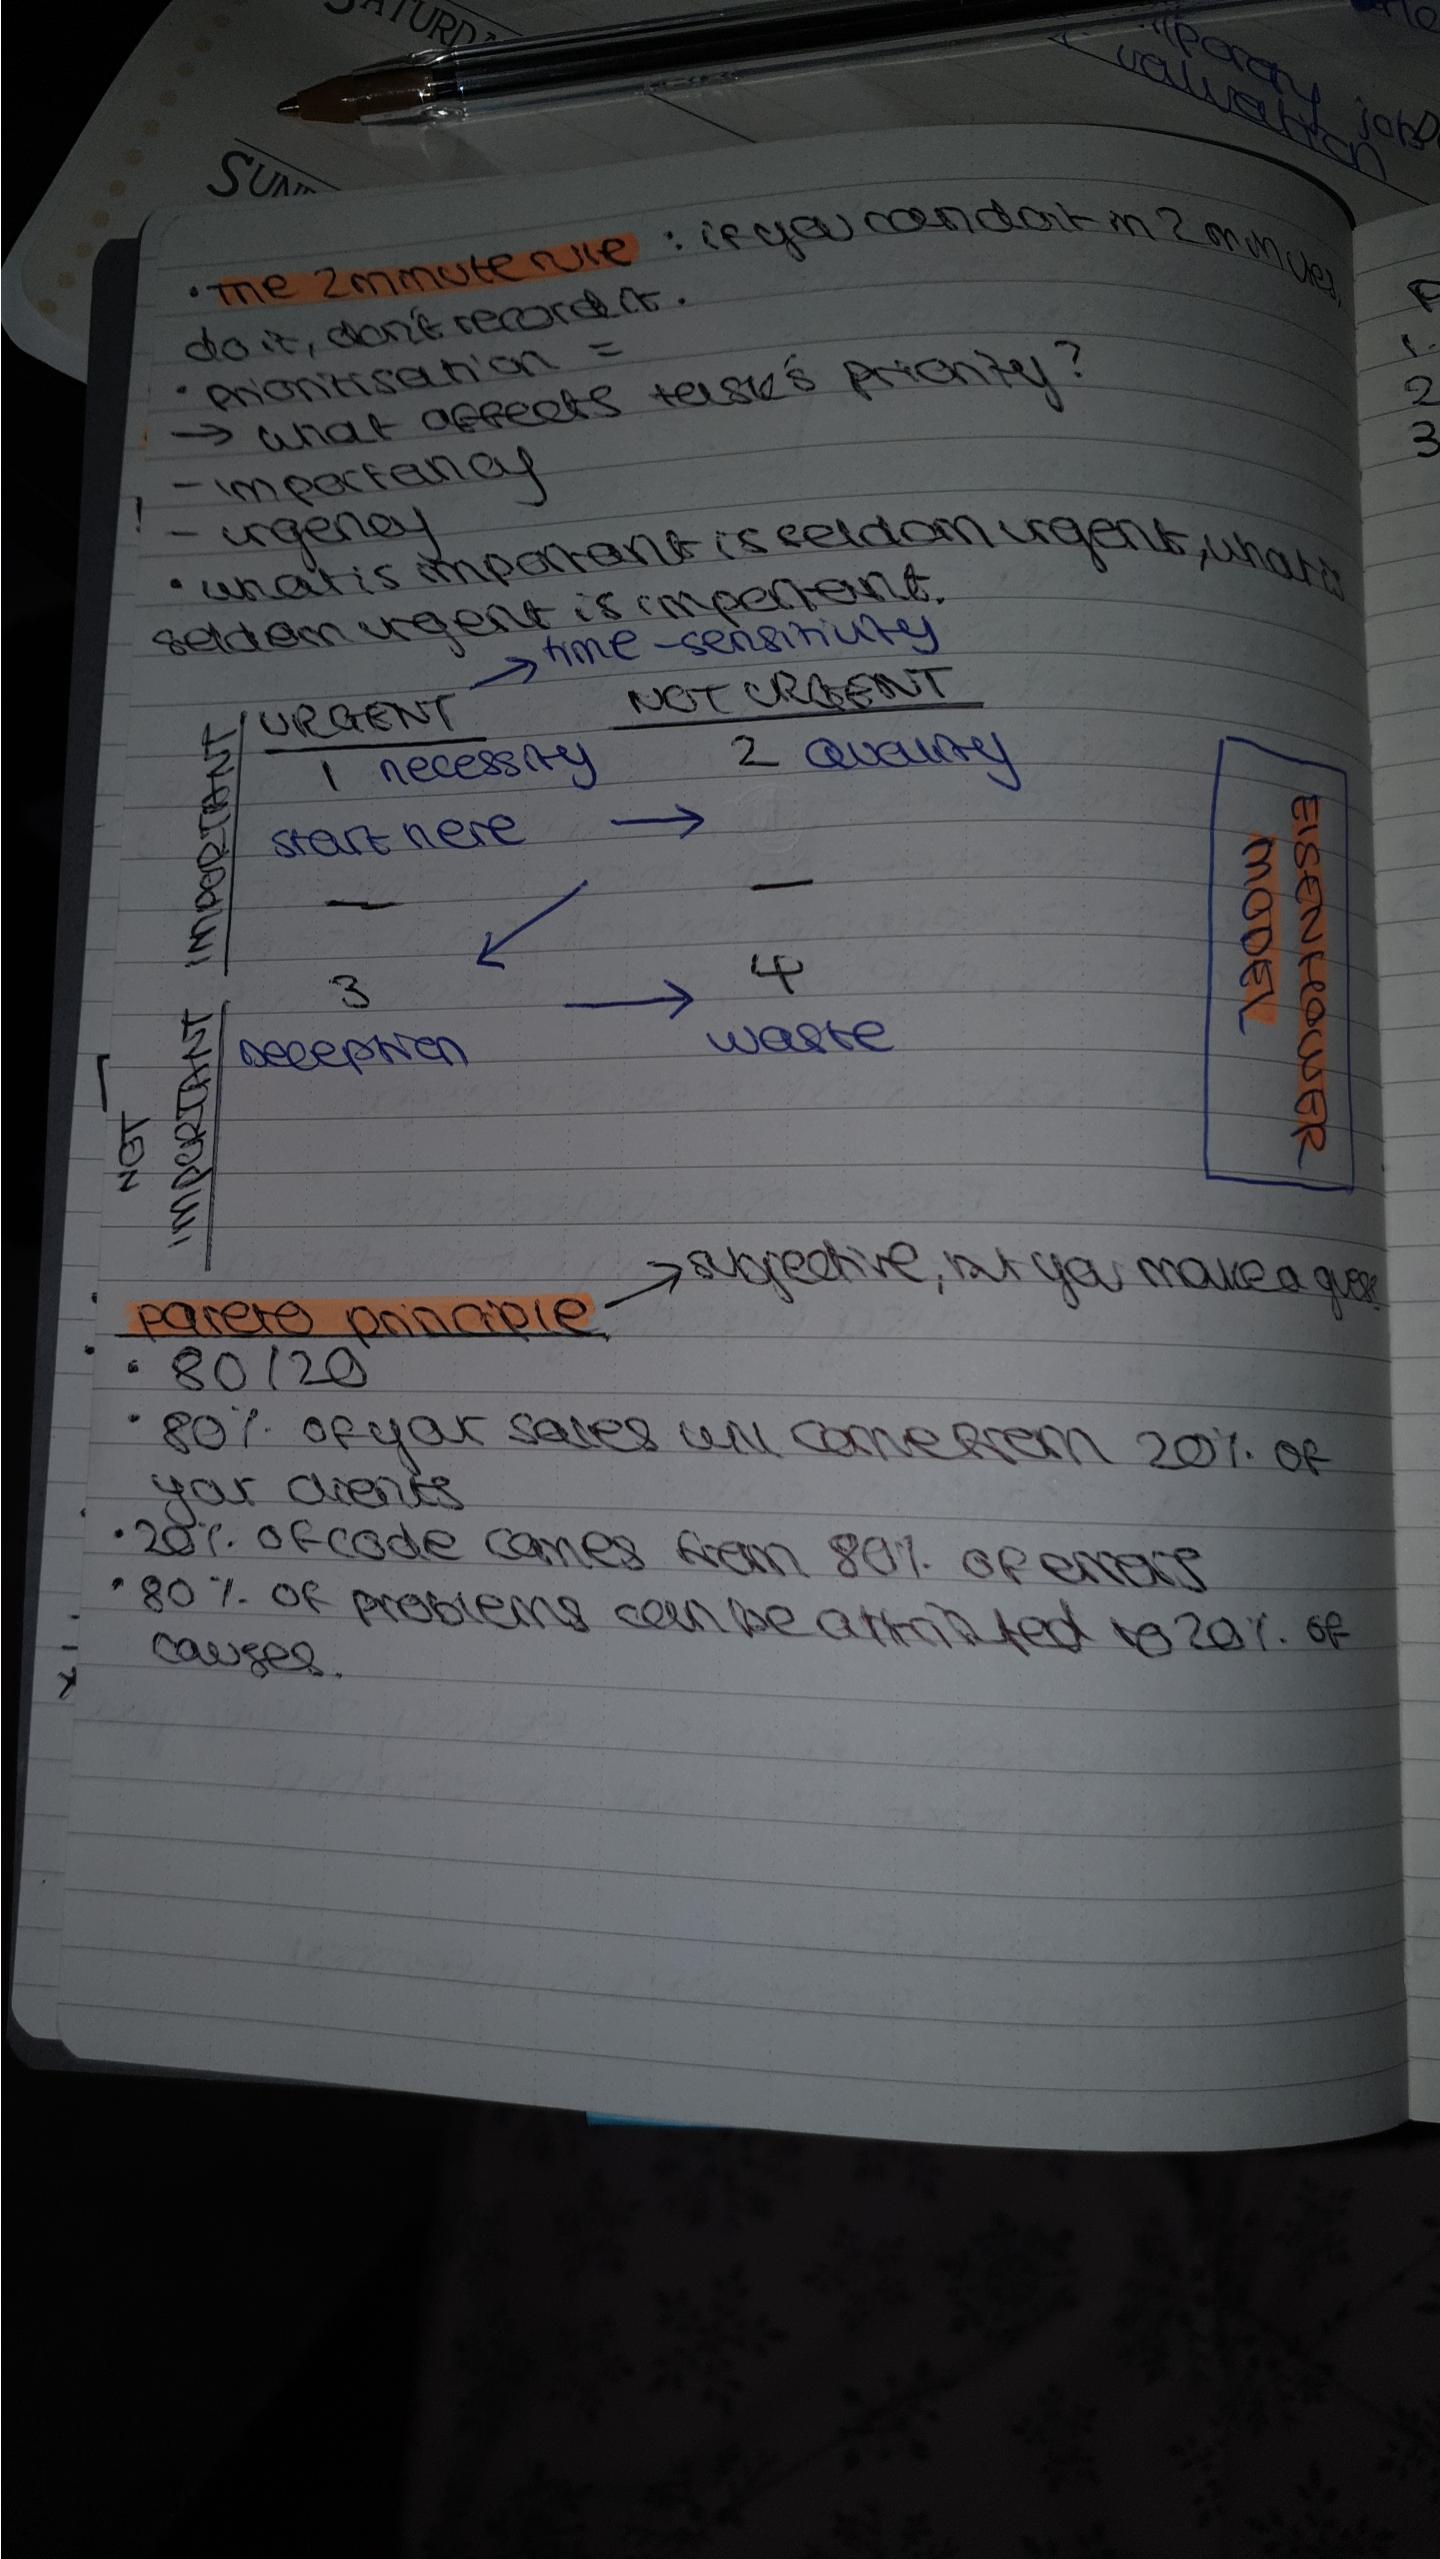 SATURDA
SUN
valuation
jobs
• the 2 minute rule : if you can do it in 2 minutes,
do it, don't record it.
• prioritisation =
→ what affects task's priority?
- importancy
! - urgency
• what is important is seldom urgent, what is
seldom urgent is important.
→ time-sensitivity
URGENT NOT URGENT
IMPORTANT
1 necessity 2 Quality
start here →
3 4
→
Deception waste
NOT
IMPORTANT
EISENHOWER
MODEL
→ subjective, but you make a guess
pareto principle
• 80/20
• 80% of your sales will come from 20% of
your clients
• 20% of code comes from 80% of errors
• 80% of problems can be attributed to 20% of
causes.
1.
2
3